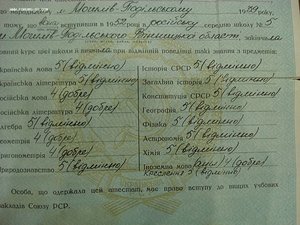 м. Могилів-Подільському 1934 року,
вступивши в 1952 в російську середню школу № 5
м Могилів Подільського Вінницької області, закінчила
повний курс цієї школи і виявила при зразковій поведінці такі знання з предметів:
українська мова 5 (відмінно) Історія СРСР 5 (відмінно)
українська література 5 (відмінно) Загальна історія 5 (відмінно)
російська мова 4 (добре) Конституція СРСР 5 (відмінно)
російська література 4 (добре) Географія 5 (відмінно)
алгебра 5 (відмінно) Фізика 5 (відмінно)
геометрія 4 (добре) Астрономія 5 (відмінно)
тригонометрія 4 (добре) Хімія 5 (відмінно)
Природознавство 5 (відмінно) Іноземна мова 4 (добре)
Креслення 5 (відмінно)
Особа, що одержала цей атестат, має право вступу до вищих учбових
закладів Союзу РСР.